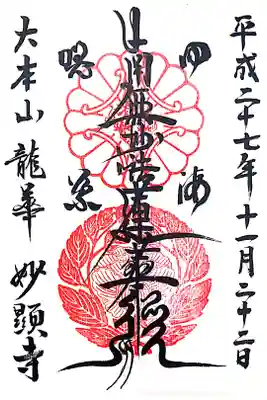 平成二十七年十一月二十二日
四海
南無妙法蓮華経
唱導
大本山 龍華 妙顯寺